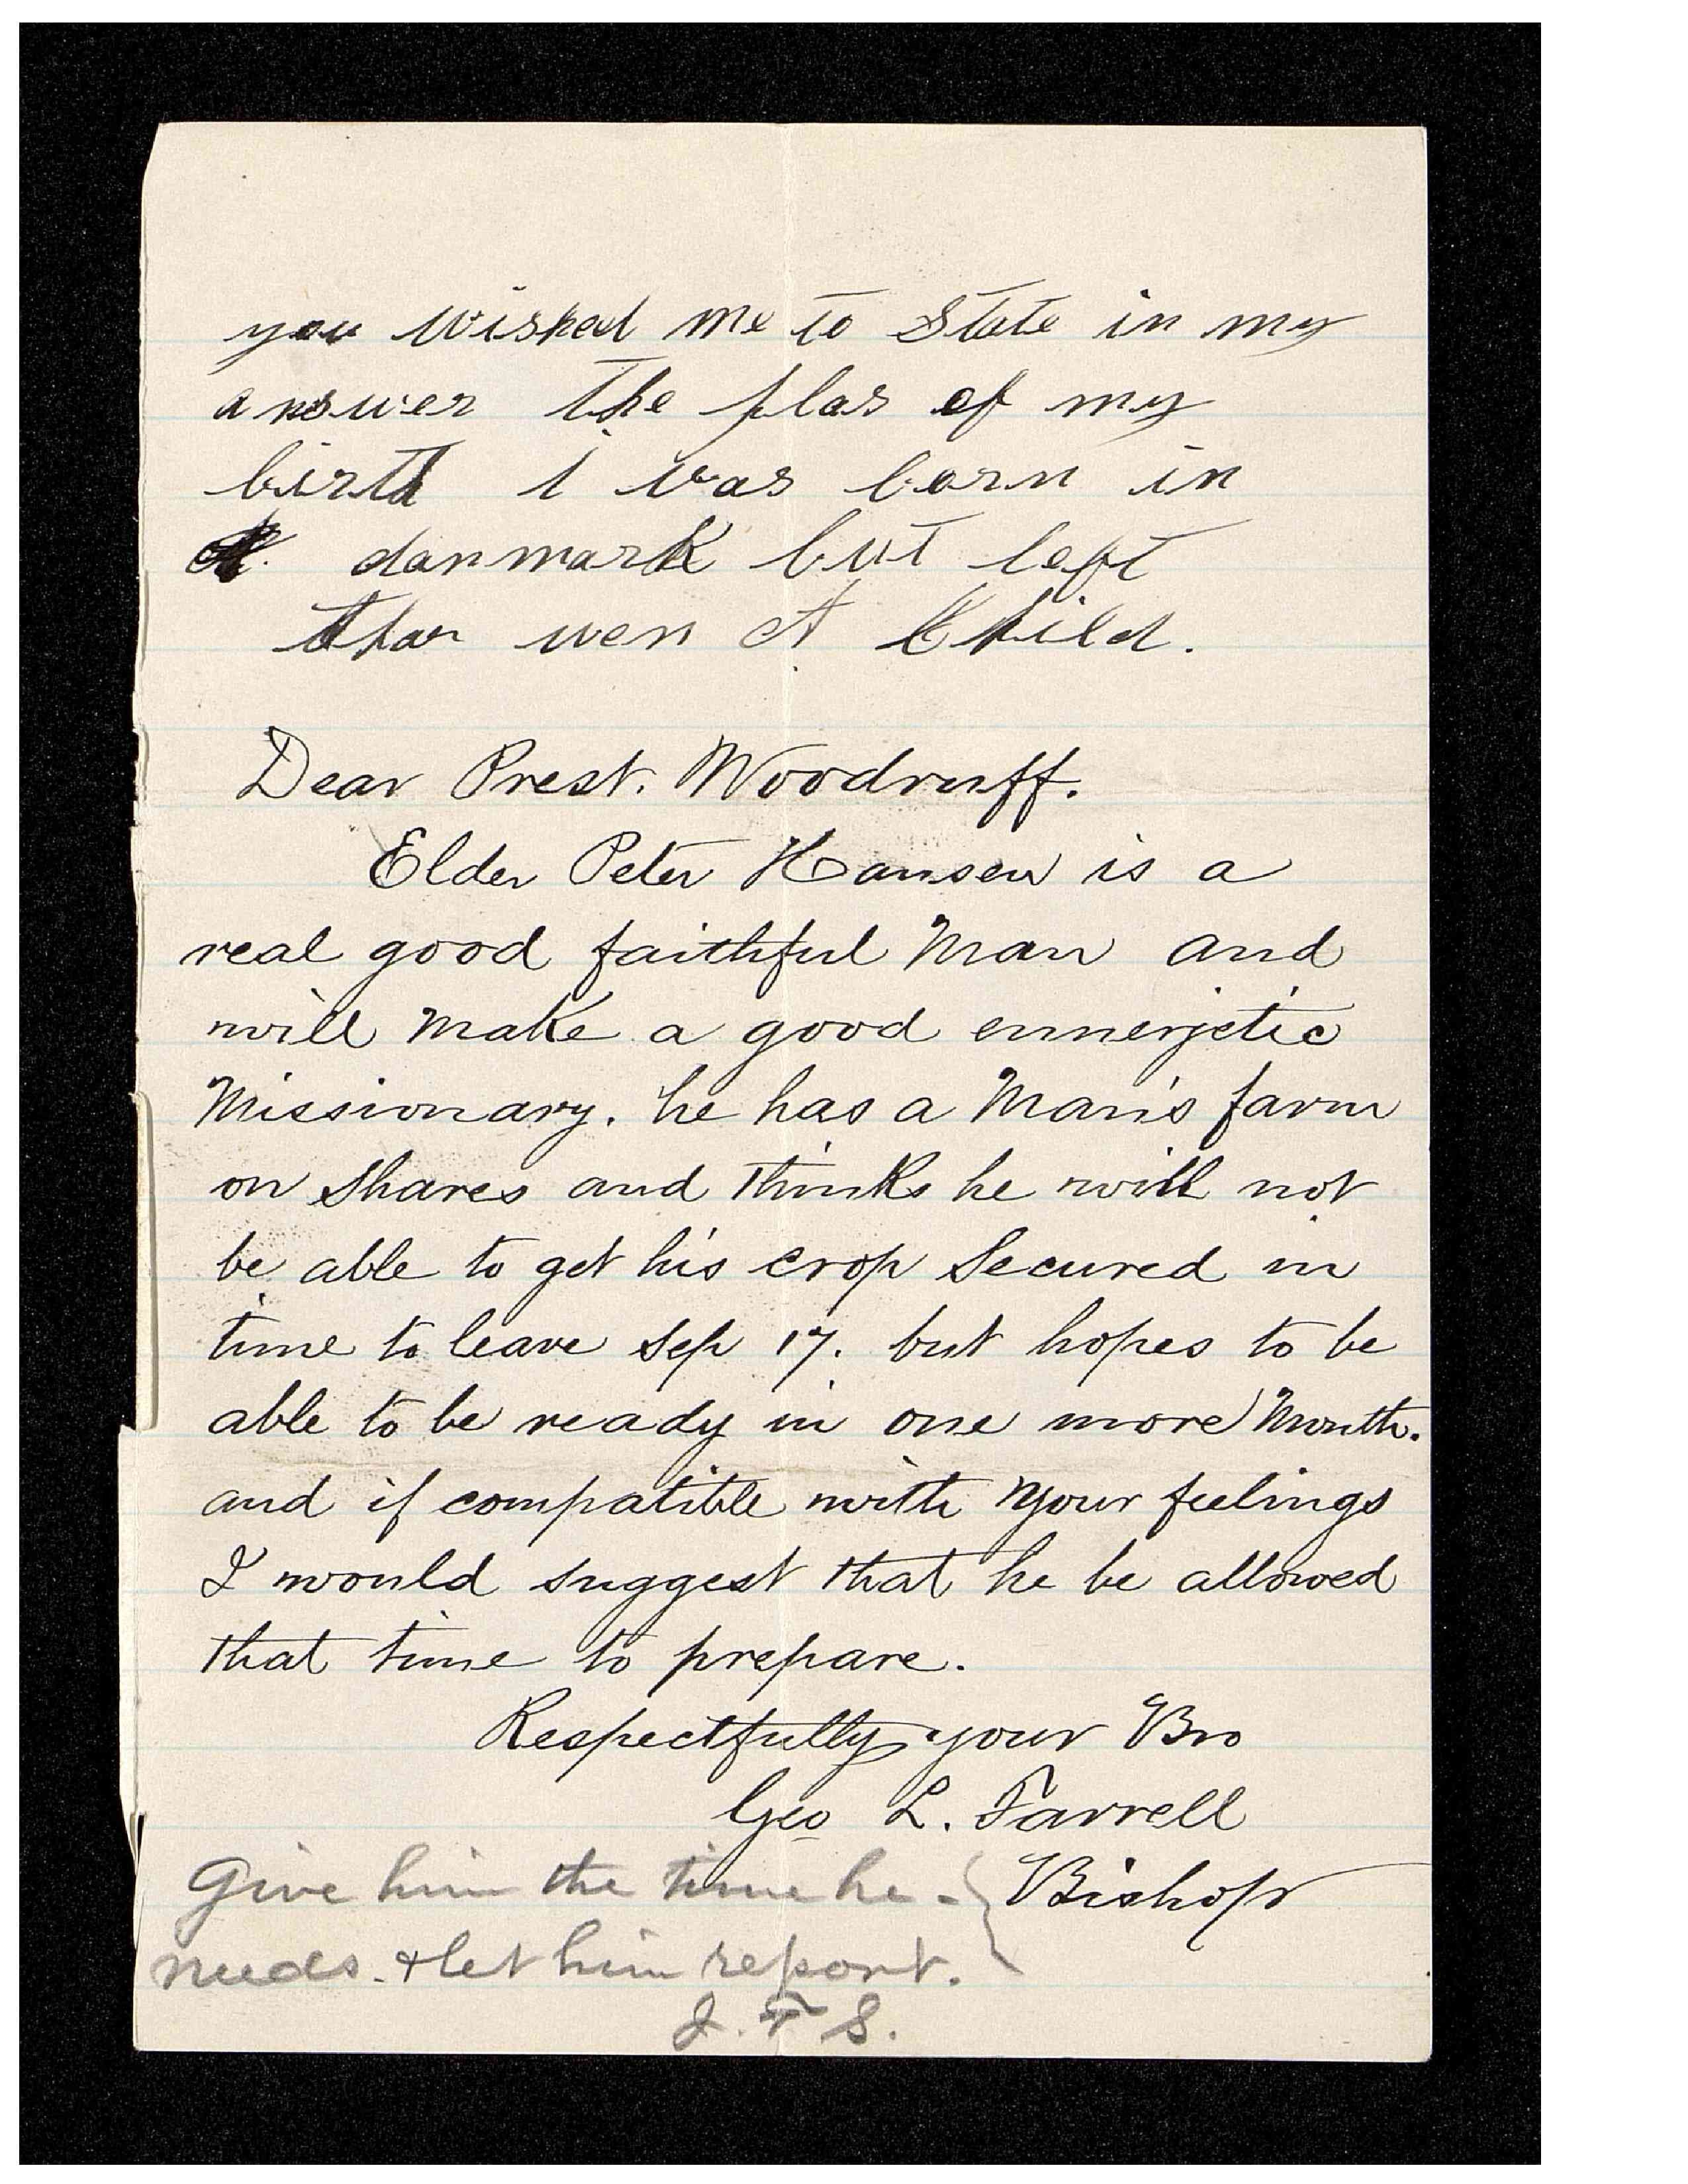 you wished me to State in my
answer the plas of my
birth i was born in
danmark but left
thar wen A Child.
Dear Prest. Woodruff.
Elder Peter Hansen is a
real good faithful Man and
will make a good ennerjetic
Missionary. he has a Man's farm
on shares and thinks he will not
be able to get his crop Secured in
time to leave Sep 17. but hopes to be
able to be ready in one more Month.
and if compatible with your feelings
I would suggest that he be allowed
that time to prepare.
Respectfully your Bro
Geo L. Farrell
Bishop
Give him the time he
needs. & let him report.
J. F S.